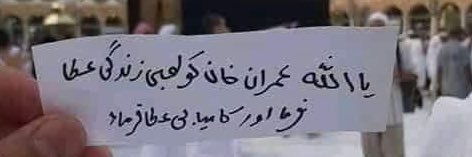 یا اللہ عمران خان کو لمبی زندگی عطا
فرما اور کامیابی عطا فرما